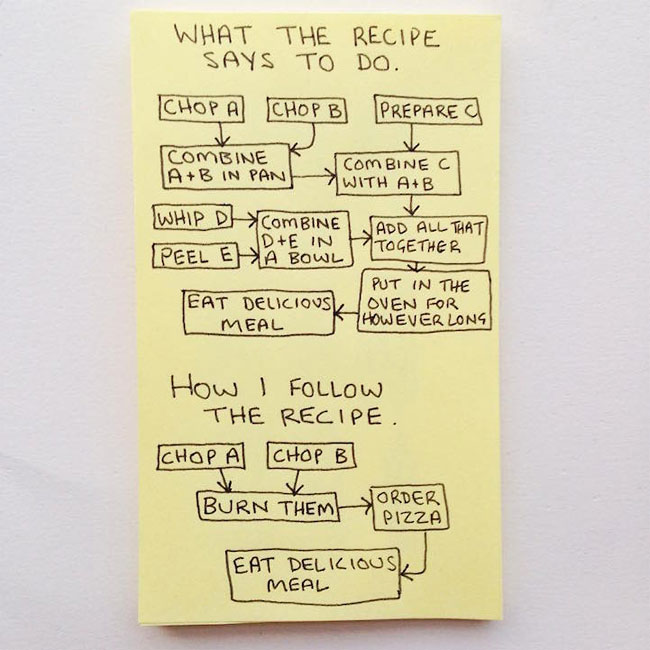 WHAT THE RECIPE
SAYS TO DO.
CHOP A
CHOP B
PREPARE C
COMBINE
A+B IN PAN
COMBINE C
WITH A+B
WHIP D
PEEL E
COMBINE
D+E IN
A BOWL
ADD ALL THAT
TOGETHER
PUT IN THE
OVEN FOR
HOWEVER LONG
EAT DELICIOUS
MEAL
HOW I FOLLOW
THE RECIPE.
CHOP A
CHOP B
BURN THEM
ORDER
PIZZA
EAT DELICIOUS
MEAL